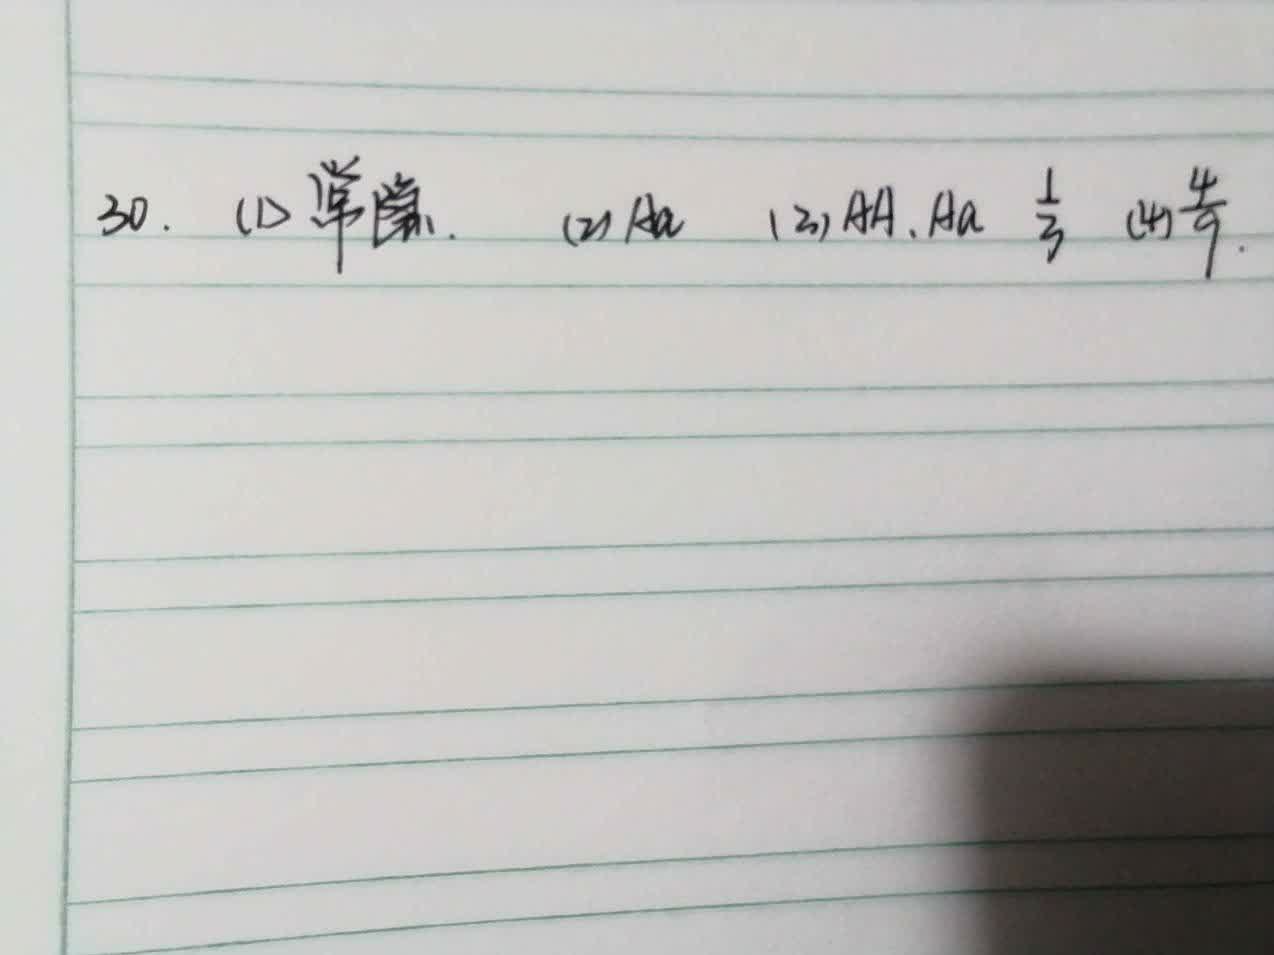 30. (1) 常隐. (2) Aa (3) AA、Aa 1/3 (4) 4/9.